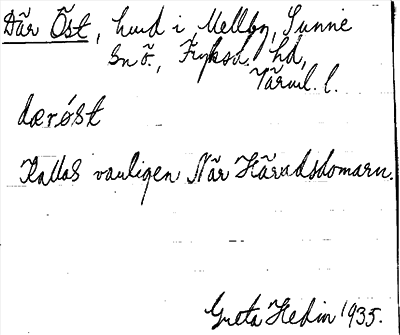 Där Öst, hmd i Mellby, Sunne
sn ö., Fryksd. hd,
Värml. l.
dærøst
Kallas vanligen När Häradsdomarn.
Greta Hedin 1935.